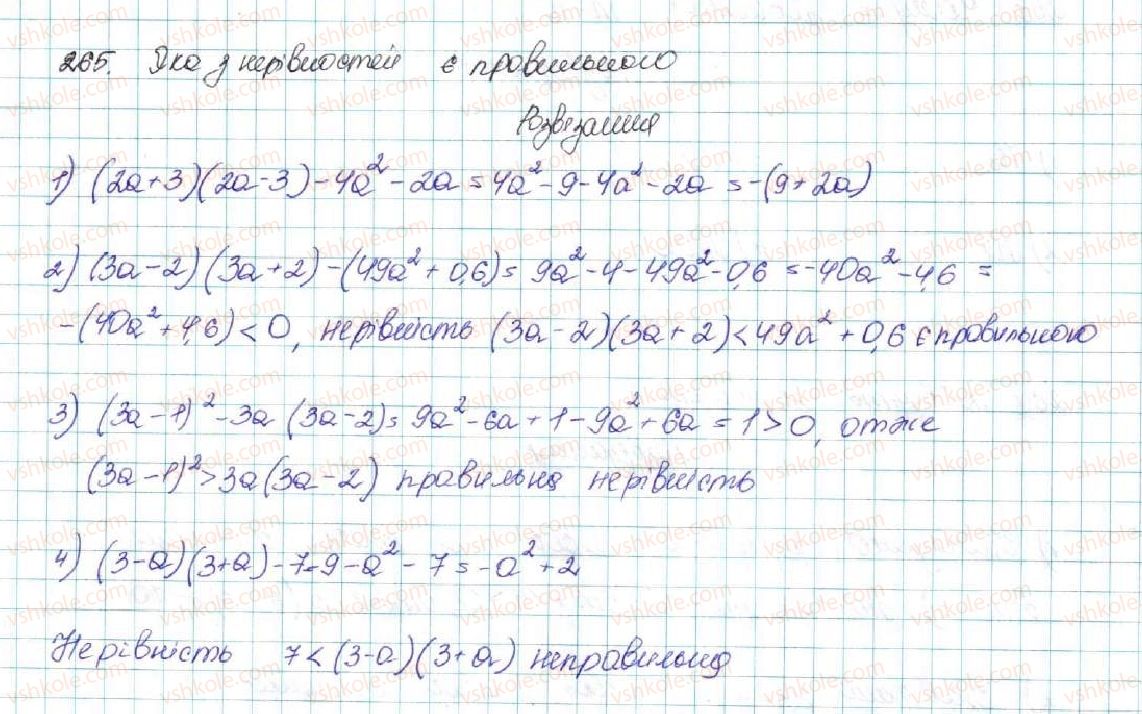 265. Яка з нерівностей є правильного
Розв'язання
1) (2a+3)(2a-3)-4a²-2a=4a²-9-4a²-2a=-(9+2a)
2) (3a-2)(3a+2)-(49a²+0,6)=9a²-4-49a²-0,6=-40a²-4,6=
-(40a²+4,6)<0, нерівність (3a-2)(3a+2)<49a²+0,6 є правильною
3) (3a-1)²-3a(3a-2)=9a²-6a+1-9a²+6a=1>0, отже
(3a-1)²>3a(3a-2) правильна нерівність
4) (3-a)(3+a)-7=9-a²-7=-a²+2
Нерівність 7<(3-a)(3+a) неправильна